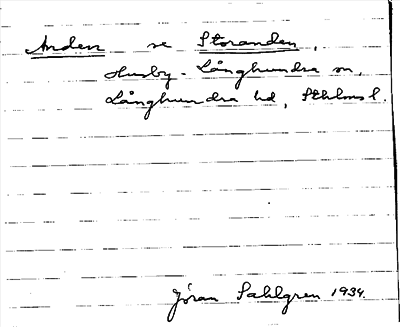 Anden se Storanden,
Husby-Långhundra sn,
Långhundra hd, Sthlms l.
Jöran Sahlgren 1934.